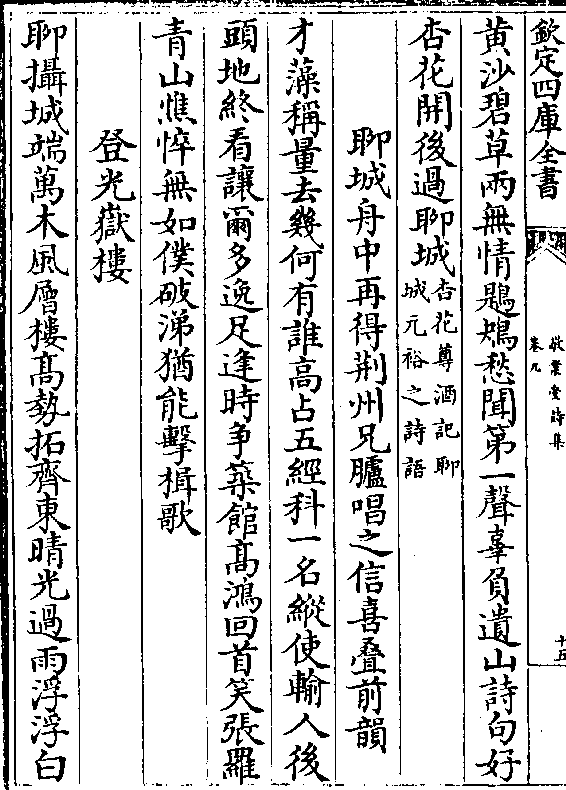 欽定四庫全書
敬業堂詩集
卷九
十五
黄沙碧草兩無情鶗鴂愁聞第一聲辜負遺山詩句好
杏花開後過聊城杏花尊酒記聊
城元裕之詩語
聊城舟中再得荆州兄臚唱之信喜叠前韻
才藻稱量去幾何有誰高占五經科一名縱使輸人後
頭地終看讓爾多逸足逢時争築館高鴻回首笑張羅
青山憔悴無如僕破涕猶能擊楫歌
登光嶽樓
聊攝城端萬木風層樓高勢拓齊東晴光過雨浮浮白